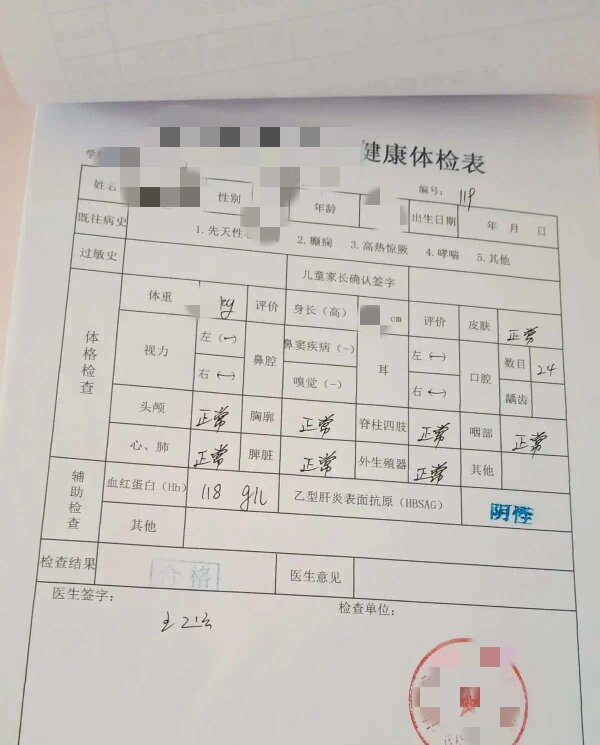 健康体检表
学
编号: 119
姓名 性别 年龄 出生日期 年 月 日
既往病史 1.先天性心 2.癫痫 3.高热惊厥 4.哮喘 5.其他
过敏史 儿童家长确认签字
体格检查
体重 kg 评价 身长(高) cm 评价 皮肤 正常
视力 左(-) 鼻腔 鼻窦疾病(-) 耳 左(-) 口腔 数目 24
右(-) 嗅觉(-) 右(-) 龋齿
头颅 正常 胸廓 正常 脊柱四肢 正常 咽部 正常
心、肺 正常 脾脏 正常 外生殖器 正常 其他
辅助检查
血红蛋白(Hb) 118 g/L 乙型肝炎表面抗原(HBSAG) 阴性
其他
检查结果 合格 医生意见
医生签字: 检查单位: